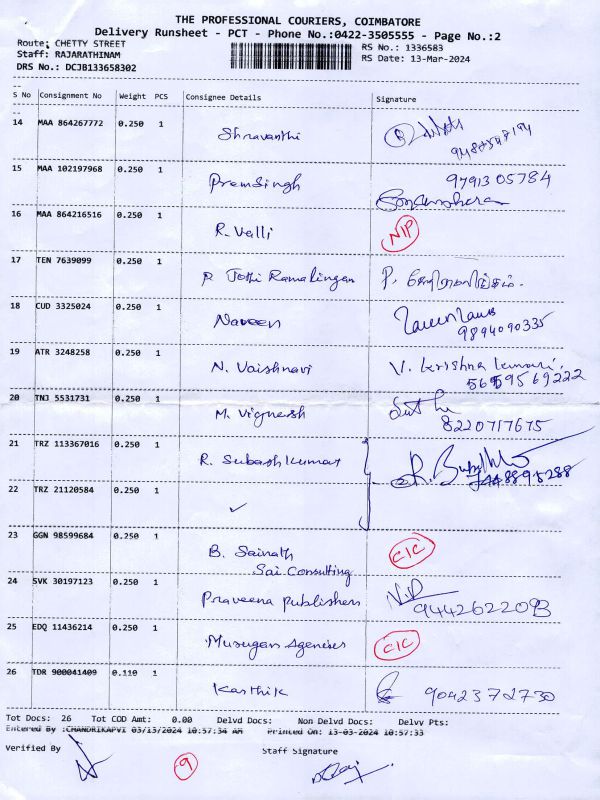 THE PROFESSIONAL COURIERS, COIMBATORE
Delivery Runsheet - PCT - Phone No.:0422-3505555 - Page No.:2
Route: CHETTY STREET
RS No.: 1336583
Staff: RAJARATHINAM
RS Date: 13-Mar-2024
DRS No.: DCJB133658302
S No Consignment No Weight PCS Consignee Details Signature
14 MAA 864267772 0.250 1 Shravanthi
15 MAA 102197968 0.250 1 Premsingh 9791305784
16 MAA 864216516 0.250 1 R. Valli NIP
17 TEN 7639099 0.250 1 P. Jothi Ramalingam P. ஜோதிராமலிங்கம்.
18 CUD 3325024 0.250 1 Naveen
9894090335
19 ATR 3248258 0.250 1 N. Vaishnavi V. krishna kumari,
9569222
20 TNJ 5531731 0.250 1 M. Vignesh
8220717675
21 TRZ 113367016 0.250 1 R. Subash Kumar
8895288
22 TRZ 21120584 0.250 1 ✓
23 GGN 98599684 0.250 1 B. Sainath CIC
Sai Consulting
24 SVK 30197123 0.250 1 Praveena Publishers
9442622093
25 EDQ 11436214 0.250 1 Murugan Agencies CIC
26 TDR 900041409 0.110 1 Karthik 9042372730
Tot Docs: 26 Tot COD Amt: 0.00 Delvd Docs: Non Delvd Docs: Delvy Pts:
Entered By :CHANDRIKAPVI 03/13/2024 10:57:34 AM Printed On: 13-03-2024 10:57:33
Verified By Staff Signature
9